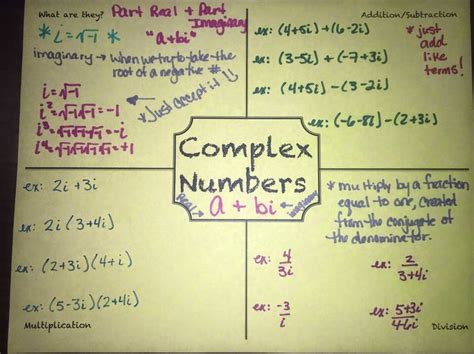 What are they? Part Real + Part Imaginary
* i = √-1 "a+bi"
imaginary → when we try to take the
root of a negative #
i = √-1
i² = √-1√-1 = -1
i³ = √-1√-1√-1 = -i
i⁴ = √-1√-1√-1√-1 = +1
*Just accept it!
Addition/Subtraction
ex: (4+5i)+(6-2i)
ex: (3-5i)+(-7+3i)
ex: (4+5i)-(3-2i)
ex: (-6-8i)-(2+3i)
*just
add
like
terms!
Complex
Numbers
a + bi
real
imaginary
ex: 2i + 3i
ex: 2i(3+4i)
ex: (2+3i)(4+i)
ex: (5-3i)(2+4i)
Multiplication
* multiply by a fraction
equal to one, created
from the conjugate of
the denominator.
ex: 4/3i
ex: 2/3+4i
ex: -3/i
ex: 5+3i/4-6i
Division